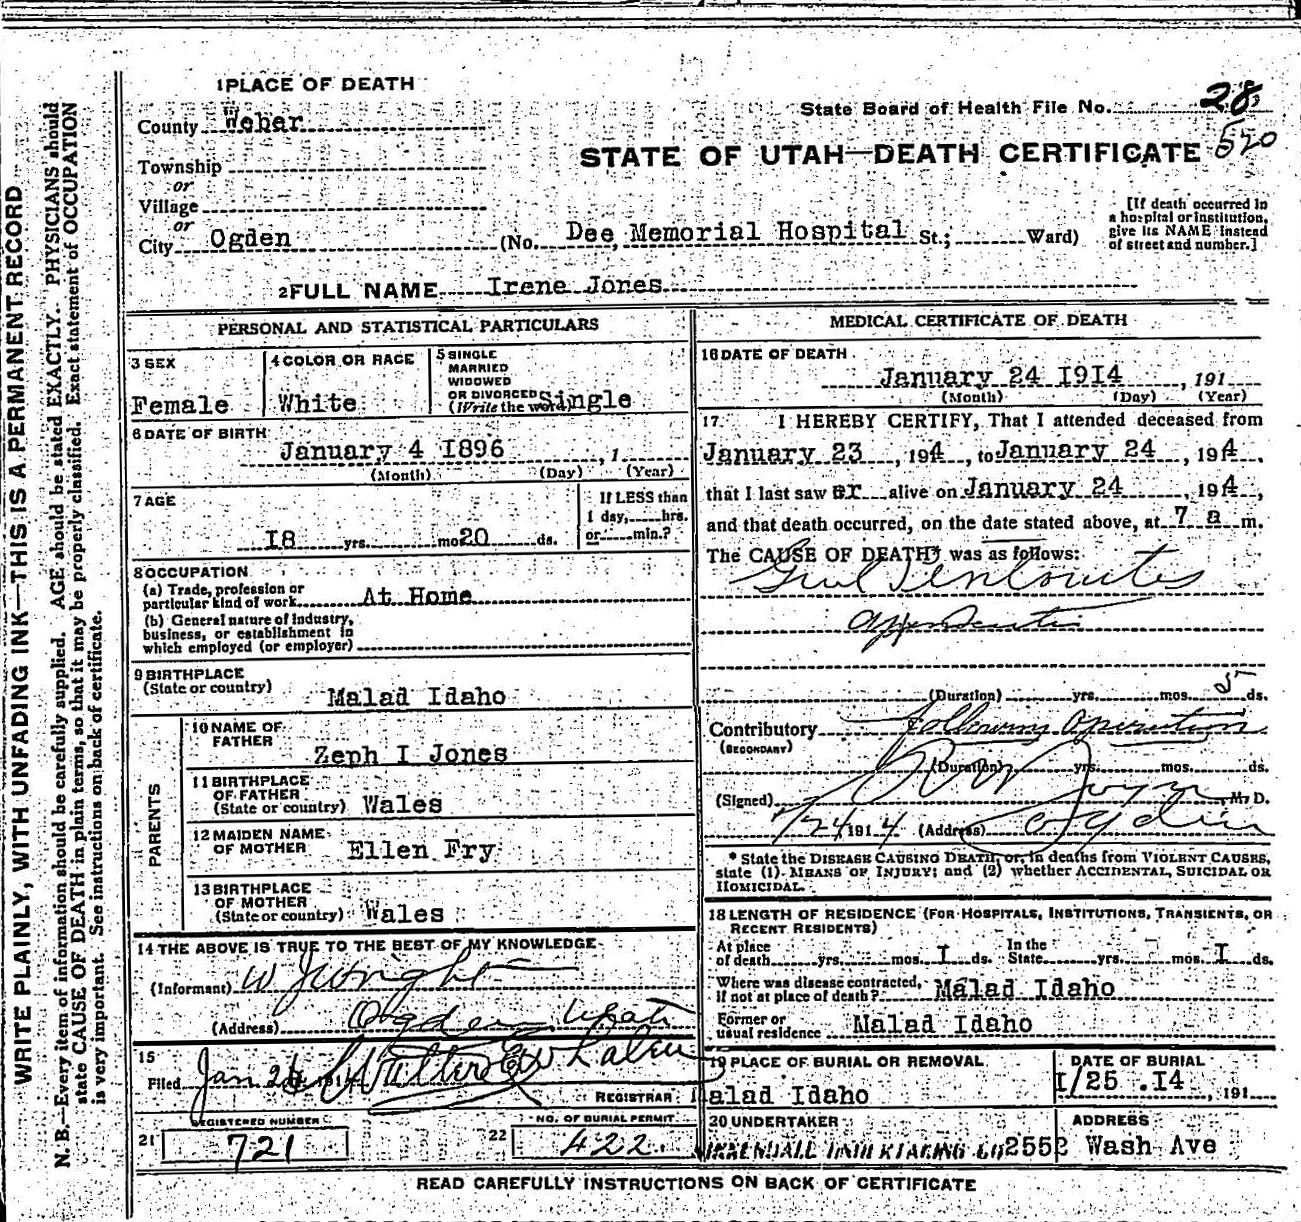 1 PLACE OF DEATH
State Board of Health File No. 28
520
County Weber
STATE OF UTAH—DEATH CERTIFICATE
Township
or
Village
or
City Ogden (No. Dee Memorial Hospital St.; Ward)
[If death occurred in
a hospital or institution,
give its NAME instead
of street and number.]
2 FULL NAME Irene Jones
PERSONAL AND STATISTICAL PARTICULARS
3 SEX
Female
4 COLOR OR RACE
White
5 SINGLE
MARRIED
WIDOWED
OR DIVORCED
(Write the word) Single
6 DATE OF BIRTH
January 4 1896 , 1
(Month) (Day) (Year)
7 AGE
18 yrs. mo 20 ds.
If LESS than
1 day, hrs.
or min.?
8 OCCUPATION
(a) Trade, profession or
particular kind of work At Home
(b) General nature of industry,
business, or establishment in
which employed (or employer)
9 BIRTHPLACE
(State or country)
Malad Idaho
PARENTS
10 NAME OF
FATHER
Zeph I Jones
11 BIRTHPLACE
OF FATHER
(State or country) Wales
12 MAIDEN NAME
OF MOTHER Ellen Fry
13 BIRTHPLACE
OF MOTHER
(State or country) Wales
14 THE ABOVE IS TRUE TO THE BEST OF MY KNOWLEDGE
(Informant) W J Wright
(Address) Ogden Utah
15
Filed Jan 26 191 Walter
REGISTRAR
REGISTERED NUMBER
21 721
NO. OF BURIAL PERMIT
22 422
MEDICAL CERTIFICATE OF DEATH
16 DATE OF DEATH
January 24 1914 , 191
(Month) (Day) (Year)
17. I HEREBY CERTIFY, That I attended deceased from
January 23 , 194 , to January 24 , 194 ,
that I last saw er alive on January 24 , 194 ,
and that death occurred, on the date stated above, at 7 a m.
The CAUSE OF DEATH* was as follows:
Appendicitis
(Duration) yrs. mos. 5 ds.
Contributory Following Operation
(SECONDARY)
(Duration) yrs. mos. ds.
(Signed) M. D.
1/24 1914 (Address) Ogden
* State the DISEASE CAUSING DEATH, or, in deaths from VIOLENT CAUSES,
state (1) MEANS OF INJURY; and (2) whether ACCIDENTAL, SUICIDAL OR
HOMICIDAL.
18 LENGTH OF RESIDENCE (FOR HOSPITALS, INSTITUTIONS, TRANSIENTS, OR
RECENT RESIDENTS)
At place
of death yrs. mos. 1 ds.
In the
State yrs. mos. 1 ds.
Where was disease contracted,
if not at place of death? Malad Idaho
Former or
usual residence Malad Idaho
19 PLACE OF BURIAL OR REMOVAL
Malad Idaho
DATE OF BURIAL
1/25 .14 , 191
20 UNDERTAKER
ADDRESS
2552 Wash Ave
READ CAREFULLY INSTRUCTIONS ON BACK OF CERTIFICATE
WRITE PLAINLY, WITH UNFADING INK—THIS IS A PERMANENT RECORD
N. B.—Every item of information should be carefully supplied. AGE should be stated EXACTLY. PHYSICIANS should
state CAUSE OF DEATH in plain terms, so that it may be properly classified. Exact statement of OCCUPATION
is very important. See instructions on back of certificate.